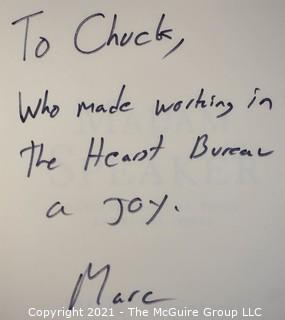 To Chuck,
Who made working in
the Hearst Bureau
a joy.
Marc
Copyright 2021 - The McGuire Group LLC